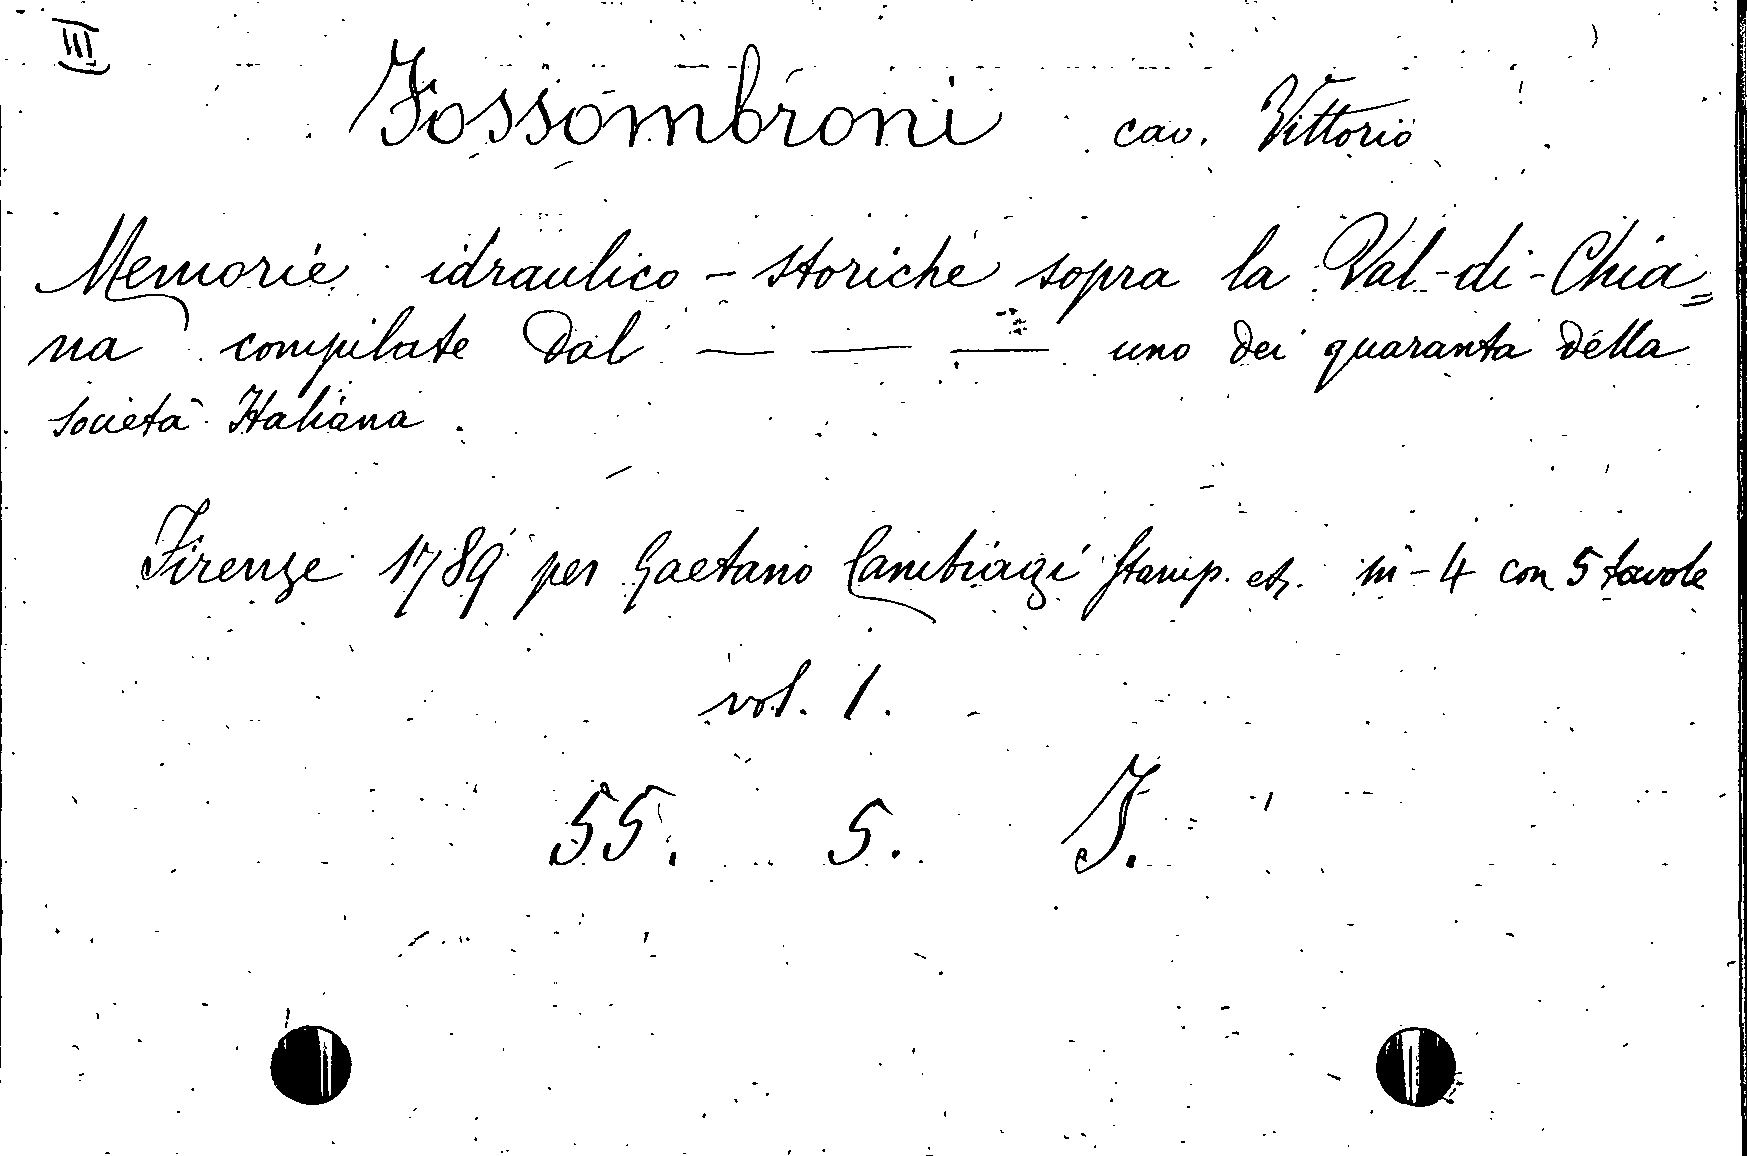 III
Fossombroni cav. Vittorio
Memorie idraulico - storiche sopra la Val-di-Chia=
na compilate dal — — — uno dei quaranta della
società Italiana.
Firenze 1789 per Gaetano Cambiagi Stamp. etc. in-4 con 5 tavole
vol. 1.
55. 5. F.